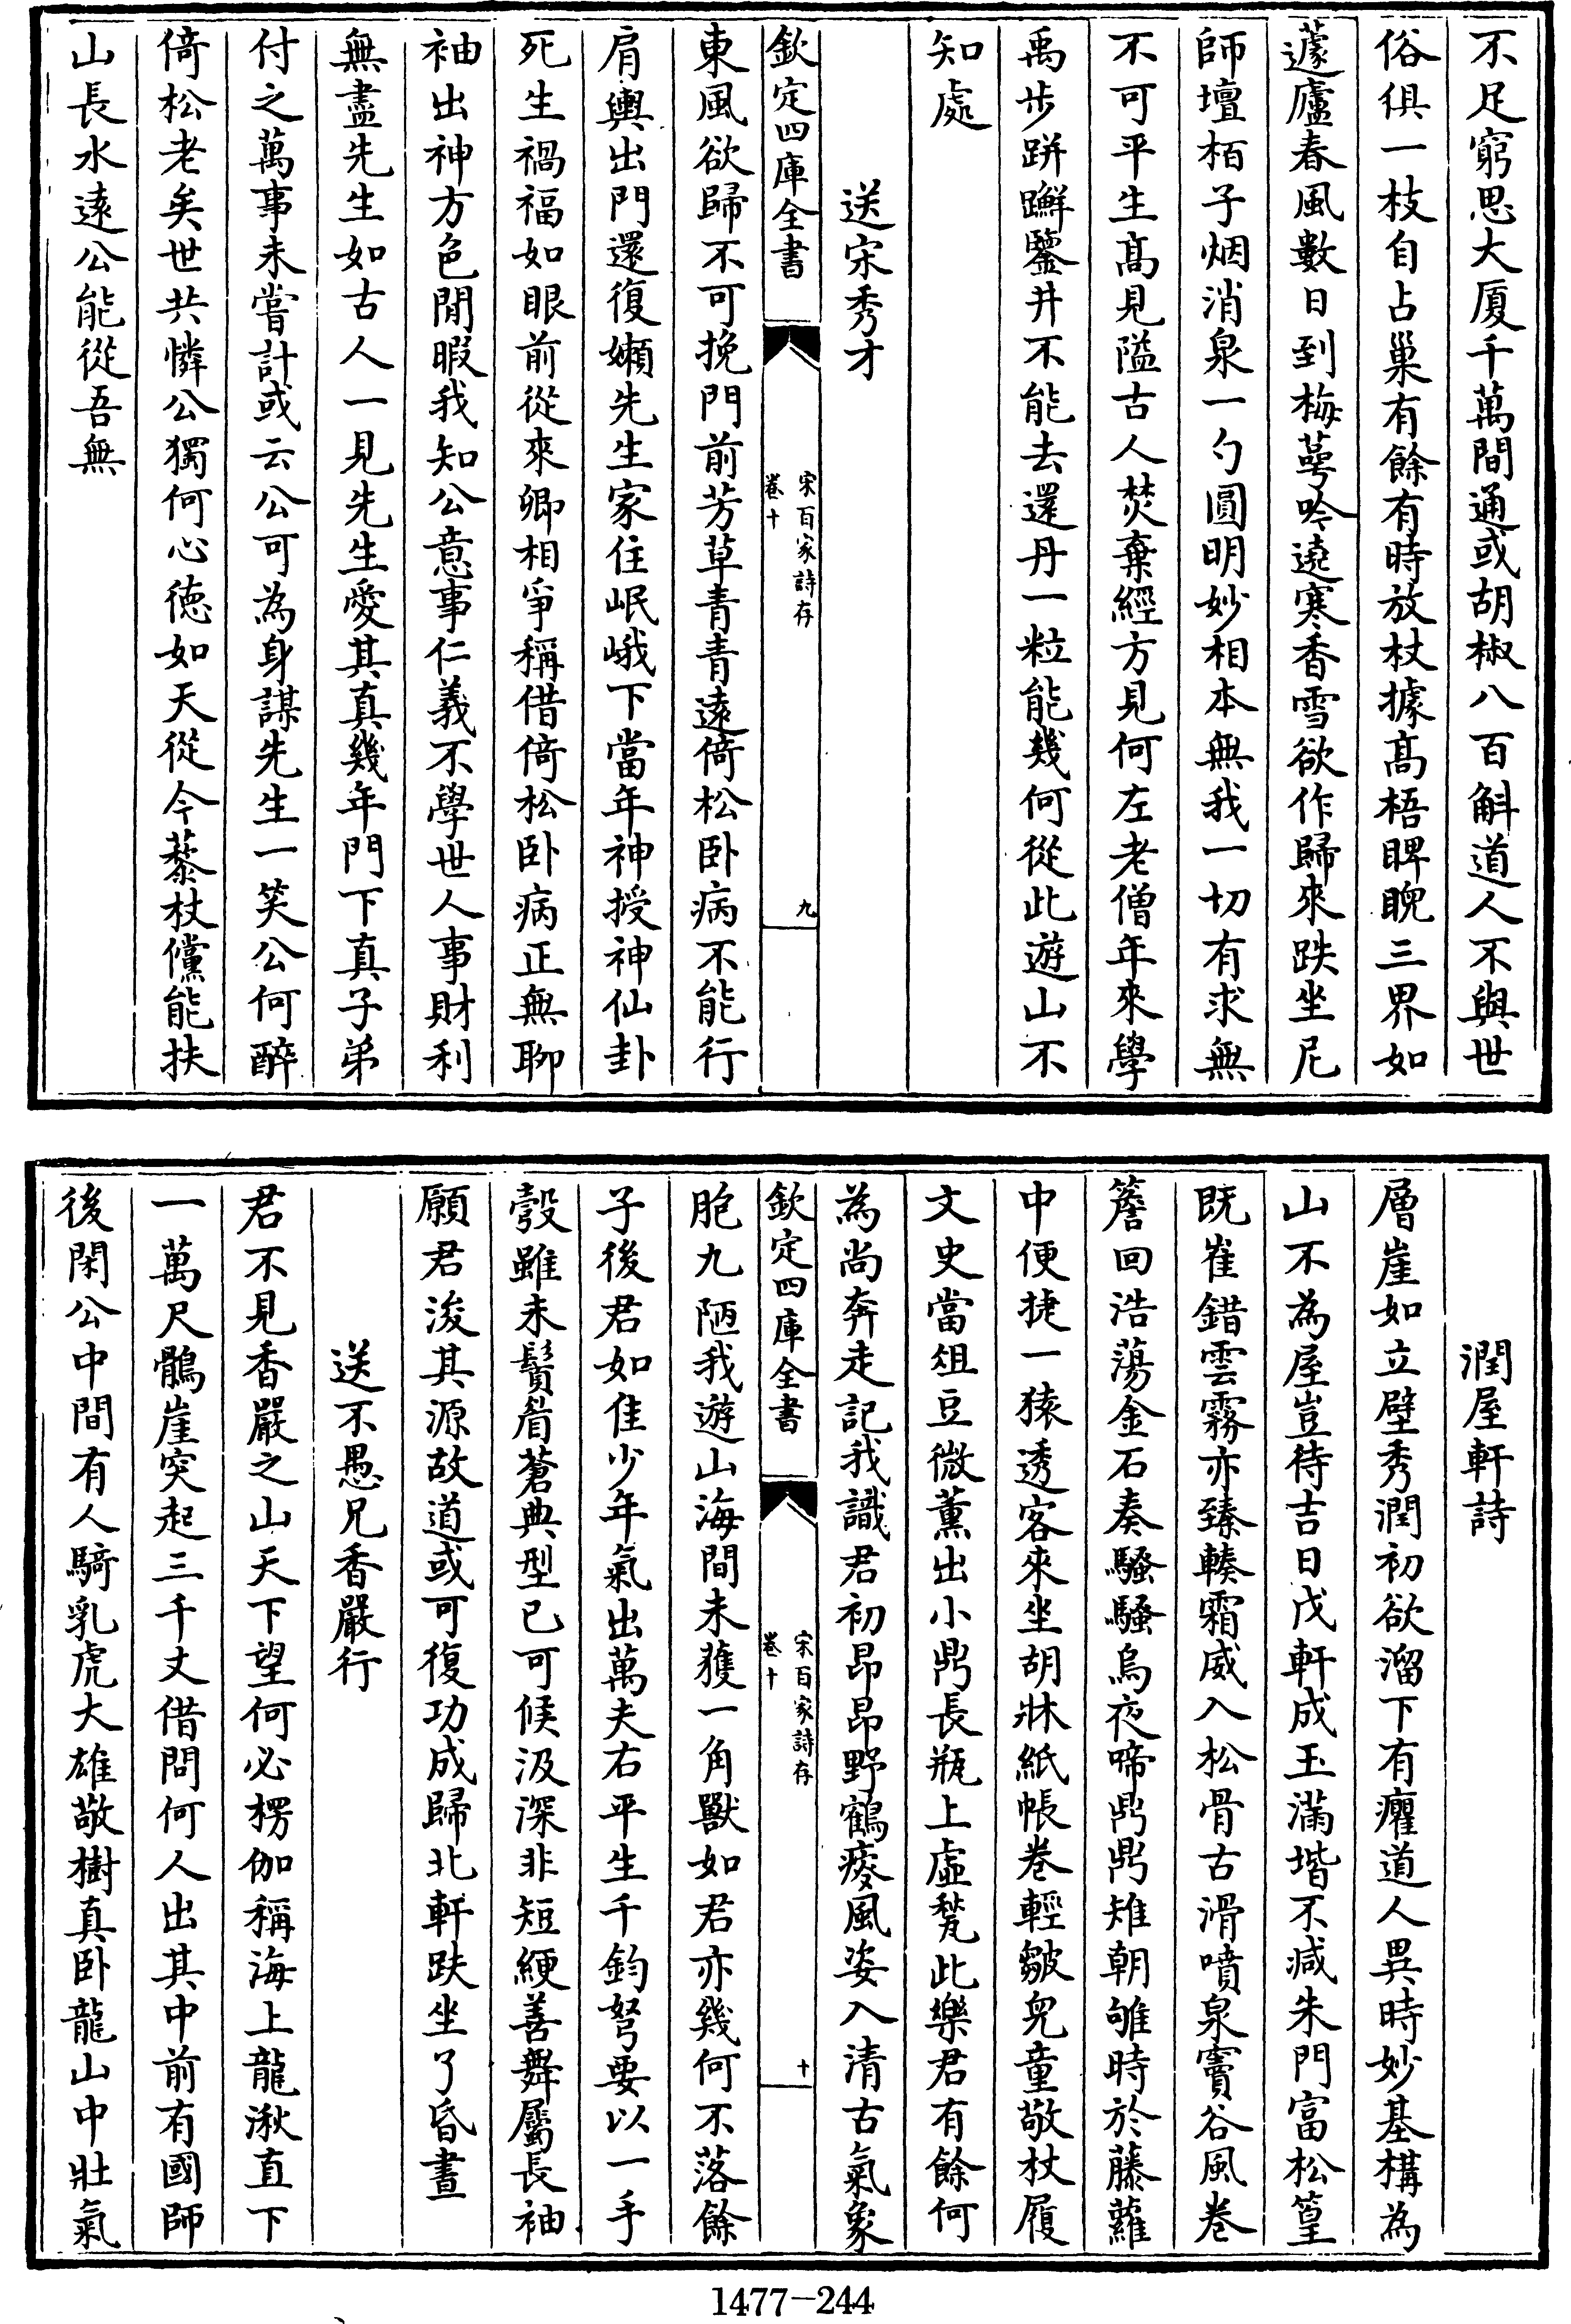 不足窮思大厦千萬間通或胡椒八百斛道人不與世
俗俱一枝自占巢有餘有時放杖據髙梧睥睨三界如
蘧廬春風數日到梅萼吟遶寒香雪欲作歸來趺坐尼
師壇栢子烟消泉一勺圓明妙相本無我一切有求無
不可平生髙見隘古人焚棄經方見何左老僧年來學
禹步跰𨇤鑒井不能去還丹一粒能幾何從此遊山不
知處
送宋秀才
欽定四庫全書
宋百家詩存
卷十
九
東風欲歸不可挽門前芳草青青遠倚松卧病不能行
肩輿出門還復嬾先生家住岷峨下當年神授神仙卦
死生禍福如眼前從來卿相爭稱借倚松卧病正無聊
袖出神方色閒暇我知公意事仁義不學世人事財利
無盡先生如古人一見先生愛其真幾年門下真子弟
付之萬事未嘗計或云公可為身謀先生一笑公何醉
倚松老矣世共憐公獨何心徳如天從今藜杖儻能扶
山長水遠公能從吾無
潤屋軒詩
層崖如立壁秀潤初欲溜下有癯道人異時妙基構為
山不為屋豈待吉日戊軒成玉滿堦不減朱門富松篁
既崔錯雲霧亦臻輳霜威入松骨古滑噴泉竇谷風卷
簷回浩蕩金石奏騷騷烏夜啼鼎鼎雉朝雊時於藤蘿
中便捷一猿透客來坐胡牀紙帳卷輕皺兒童敬杖履
文史當俎豆微薰出小鼎長瓶上虛甃此樂君有餘何
為尚奔走記我識君初昂昂野鶴瘦風姿入清古氣象
欽定四庫全書
宋百家詩存
卷十
十
脃九陋我遊山海間未獲一角獸如君亦幾何不落餘
子後君如隹少年氣出萬夫右平生千鈞弩要以一手
彀雖未鬢眉蒼典型已可候汲深非短綆善舞屬長袖
願君浚其源故道或可復功成歸北軒趺坐了昏晝
送不愚兄香嚴行
君不見香嚴之山天下望何必楞伽稱海上龍湫直下
一萬尺鶻崖突起三千丈借問何人出其中前有國師
後閑公中間有人騎乳虎大雄敬樹真卧龍山中壯氣
1477-244